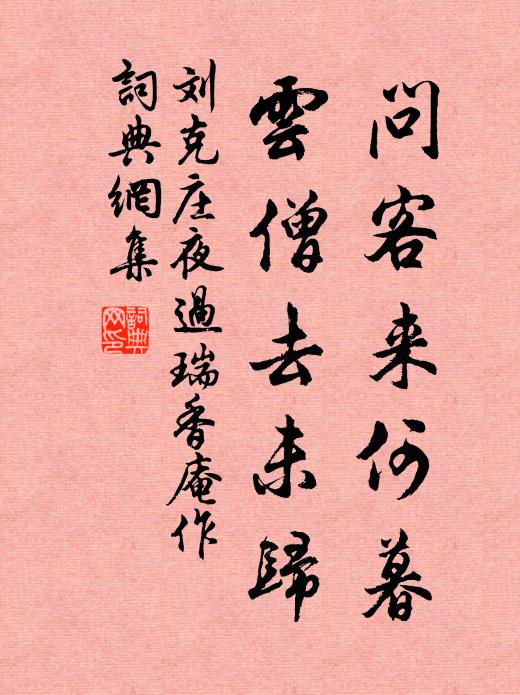 問客来何暮
雲僧去未歸
刘克庄夜過瑞香庵作
詞典網集
詞典
网印